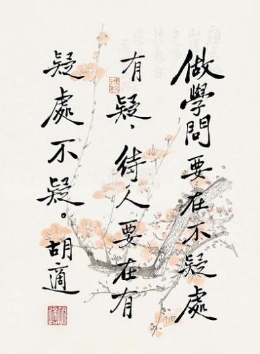 做學問要在不疑處
有疑，待人要在有
疑處不疑。
胡適